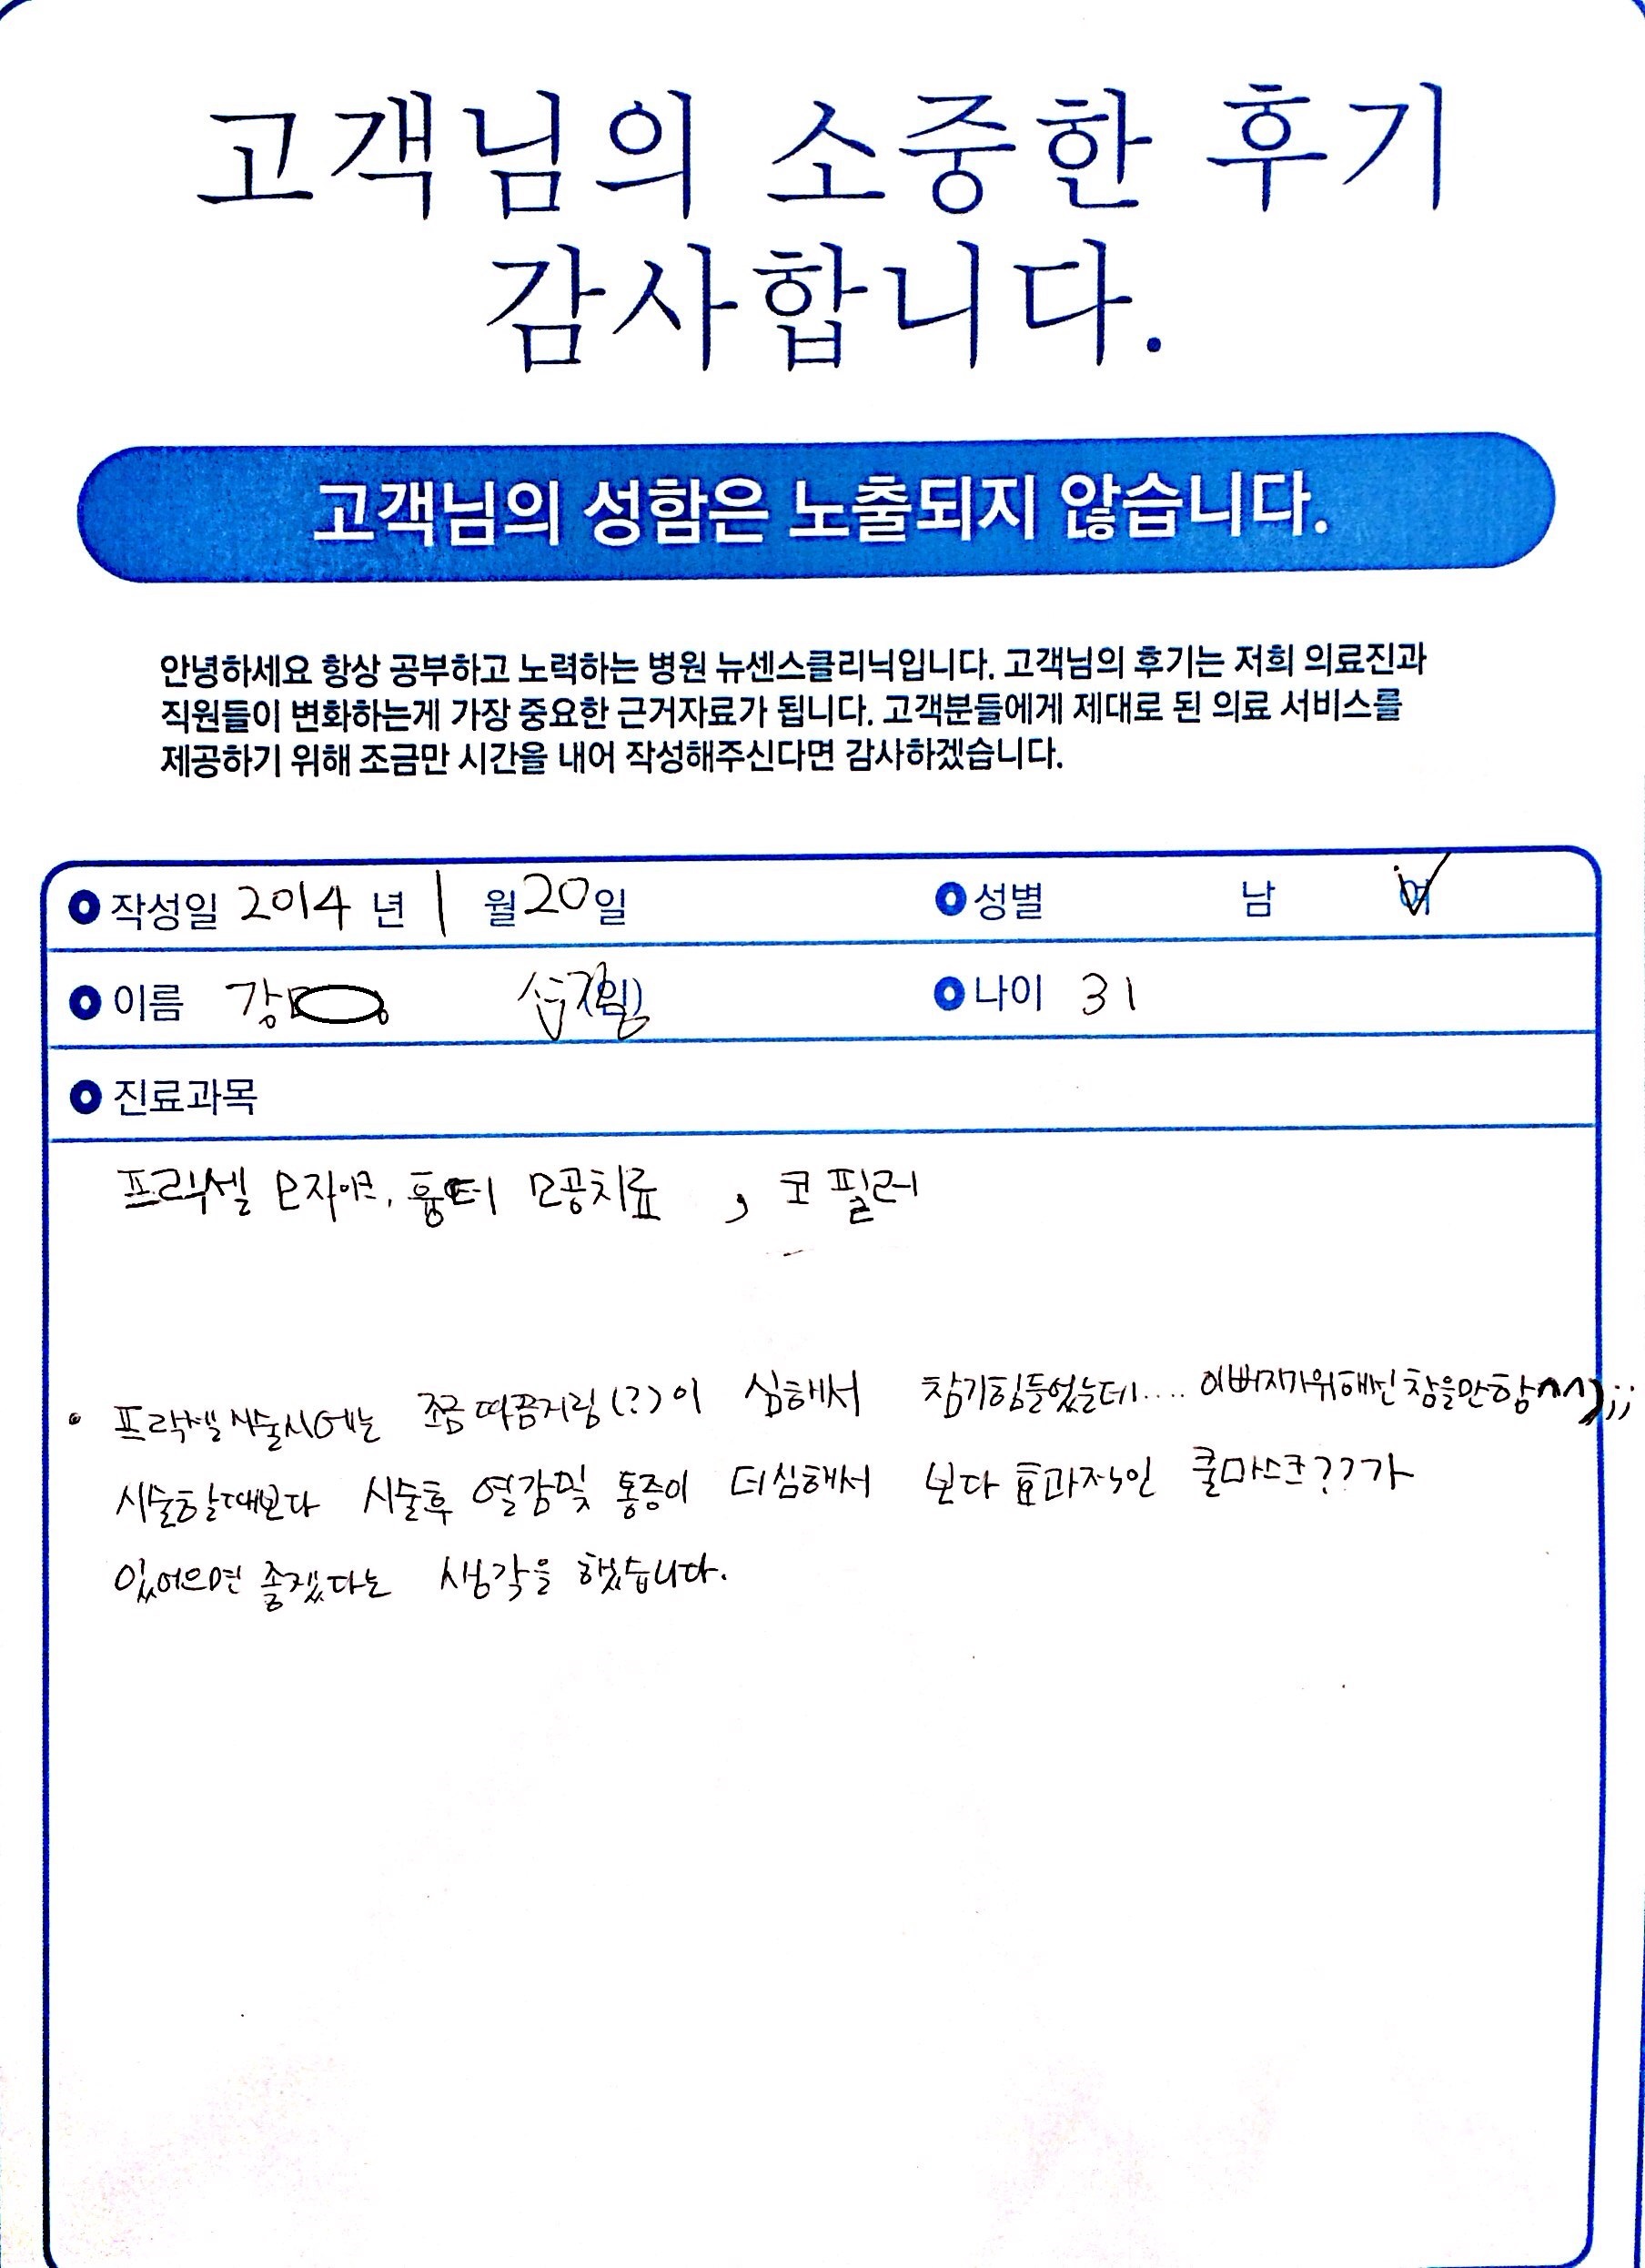 고객님의 소중한 후기
감사합니다.
고객님의 성함은 노출되지 않습니다.
안녕하세요 항상 공부하고 노력하는 병원 뉴센스클리닉입니다. 고객님의 후기는 저희 의료진과
직원들이 변화하는게 가장 중요한 근거자료가 됩니다. 고객분들에게 제대로 된 의료 서비스를
제공하기 위해 조금만 시간을 내어 작성해주신다면 감사하겠습니다.
작성일 2014 년 1 월 20 일 성별 남 여
이름 강 (인) 나이 31
진료과목
프락셀 모자이크, 흉터 모공치료 , 코 필러
• 프락셀 시술시에는 조금 따끔저림(?)이 심해서 참기힘들었는데.... 이뻐지기위해선 참을만함^^);;
시술할때보다 시술후 열감및 통증이 더심해서 보다 효과적인 쿨마스크??가
있었으면 좋겠다는 생각을 했습니다.